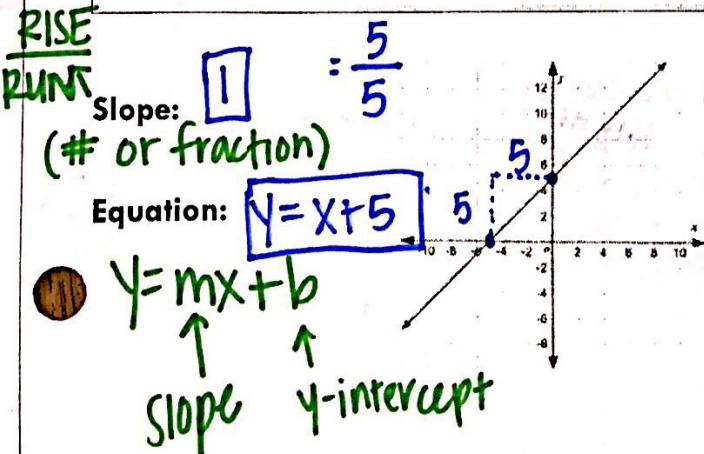 RISE
RUN
Slope: 1 = 5/5
(# or fraction)
Equation: y=x+5
y=mx+b
slope y-intercept
5
5
y
12
10
8
6
4
2
-10 -8 -6 -4 -2 2 4 6 8 10 x
-2
-4
-6
-8